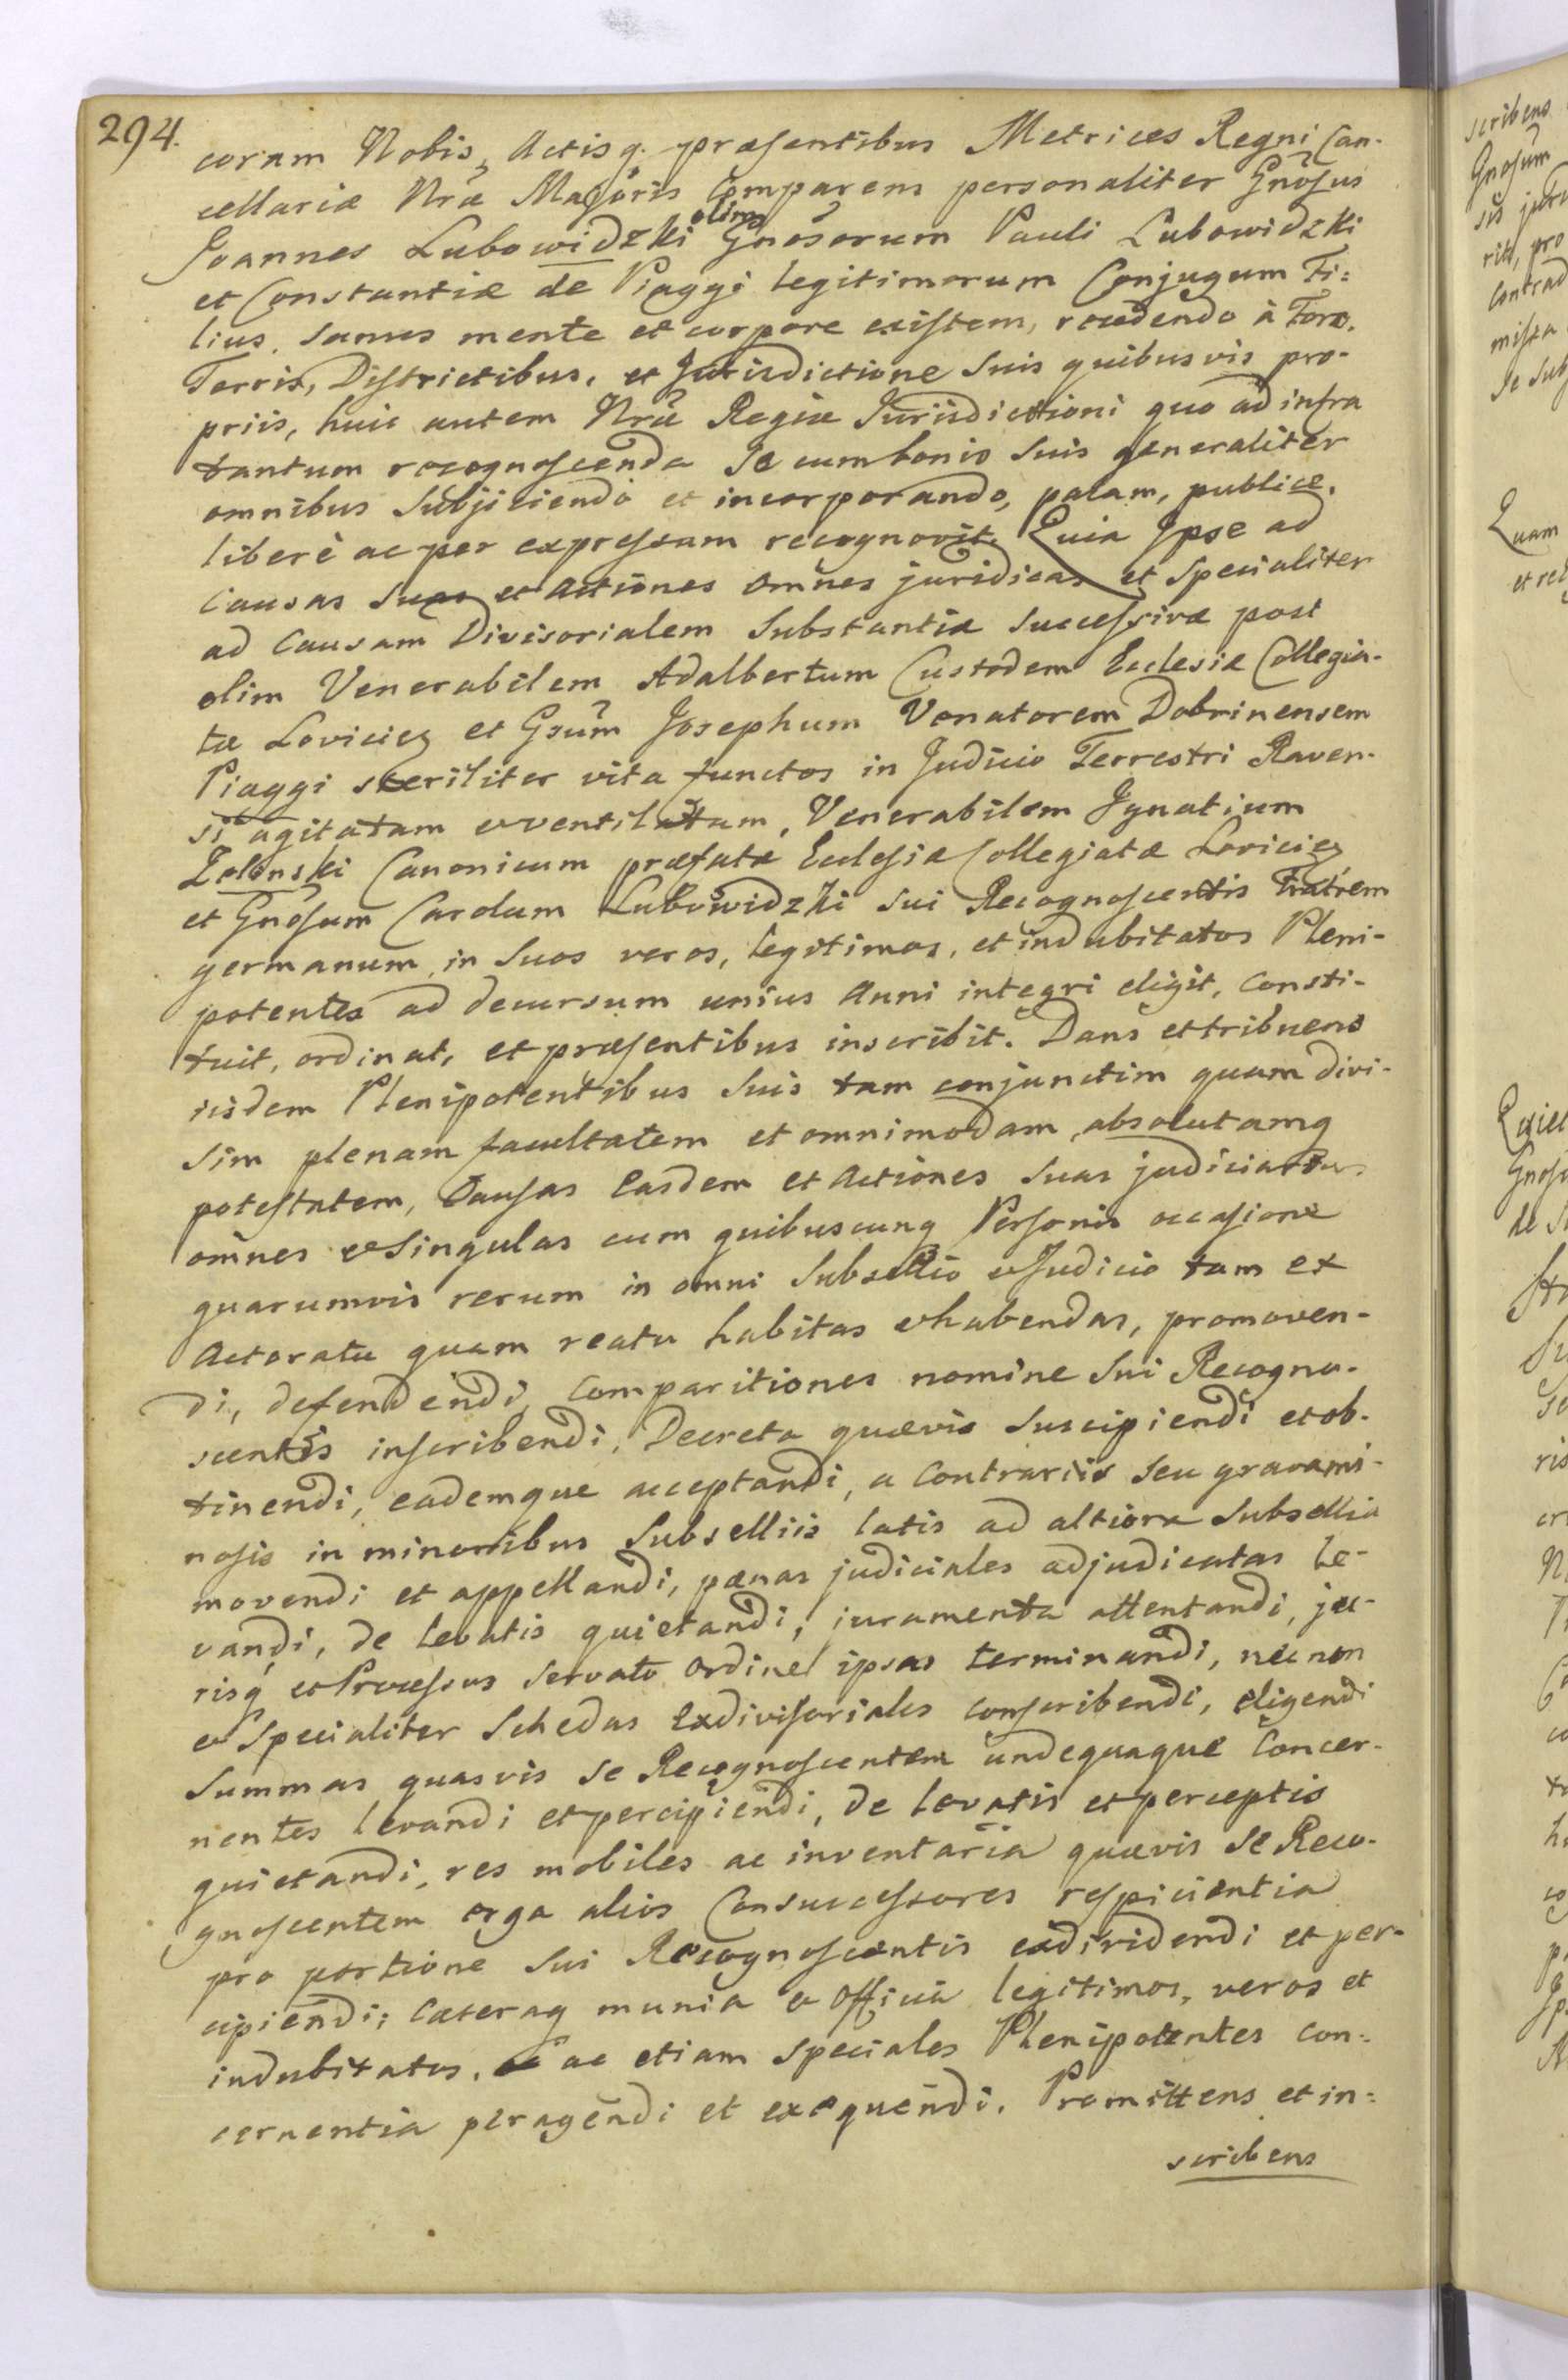 294.
coram Nobis, Actisq. præsentibus Metrices Regni Can-
cellariæ Nræ Majoris Comparens personaliter Gnosus
Joannes Lubowidzki olim Gnosorum Pauli Lubowidzki
et Constantiæ de Piaggi legitimorum Conjugum Fi=
lius, sanus mente et corpore existem, recedendo à Foro,
Terris, Districtibus, et Jurisdictione suis quibusvis pro-
priis, huic autem Nræ Regiæ Jurisdictioni quo ad infra
tantum recognoscenda se cum bonis suis generaliter
omnibus subjiciendo et incorporando, palam, publice,
liberè ac per expressam recognovit. Quia Ipse ad
Causas suas et Actiones omnes juridicas et specialiter
ad Causam Divisorialem Substantiæ successivæ post
olim Venerabilem Adalbertum Custodem Ecclesiæ Collegia-
tæ Lovicien et Gsum Josephum Venatorem Dobrinensem
Piaggi steriliter vita functos in Judicio Terrestri Raven-
si agitatam et ventilatam, Venerabilem Ignatium
Zolenski Canonicum præfatæ Ecclesiæ Collegiatæ Lovicien
et Gnosum Carolum Lubowidzki sui Recognoscentis Fratrem
germanum in suos veros, legitimos, et indubitatos Pleni-
potentes ad decursum unius Anni integri eligit, consti-
tuit, ordinat, et præsentibus inscribit. Dans et tribuens
iisdem Plenipotentibus suis tam conjunctim quam divi-
sim plenam facultatem et omnimodam, absolutamq
potestatem, Causas easdem et Actiones suas judiciarias
omnes et singulas cum quibuscunq Personis occasione
quarumvis rerum in omni Subsellio et Judicio tam ex
Actoratu quam reatu habitas et habendas, promoven-
di, defendendi, Comparitiones nomine sui Recogno-
scentis inscribendi, Decreta quævis suscipiendi et ob-
tinendi, eademque acceptandi, a Contrariis seu gravami-
nosis in minoribus Subselliis latis ad altiora Subsellia
movendi et appellandi, pænas judiciales adjudicatas le-
vandi, de levatis quietandi, juramenta attentandi, ju-
risq et Processus servato ordine ipsas terminandi, nec non
et specialiter Schedas Exdivisoriales conscribendi, eligendi
Summas quasvis se Recognoscentem undequaque Concer-
nentes levandi et percipiendi, de levatis et perceptis
quietandi, res mobiles ac inventaria quævis se Reco-
gnoscentem erga alios Consuccessores respicientia
pro portione sui Recognoscentis exdividendi et per-
cipiendi; Cæteraq munia et Officia legitimos, veros et
indubitatos, ac etiam speciales Plenipotentes con=
cernentia peragendi et exequendi. Promittens et in=
scribens
scribens
Gnosum
sis
pro
Contrad
missa
se sub
Quam
et